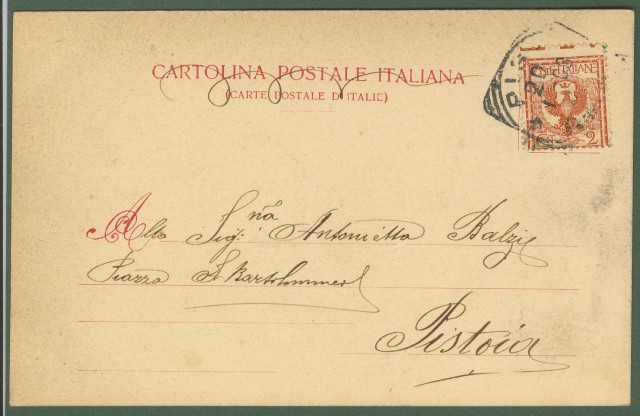 CARTOLINA POSTALE ITALIANA
(CARTE POSTALE D'ITALIE)
POSTE ITALIANE
2
Alla Sig.na Antonietta Balzi
Piazza S. Bartolommeo
Pistoia